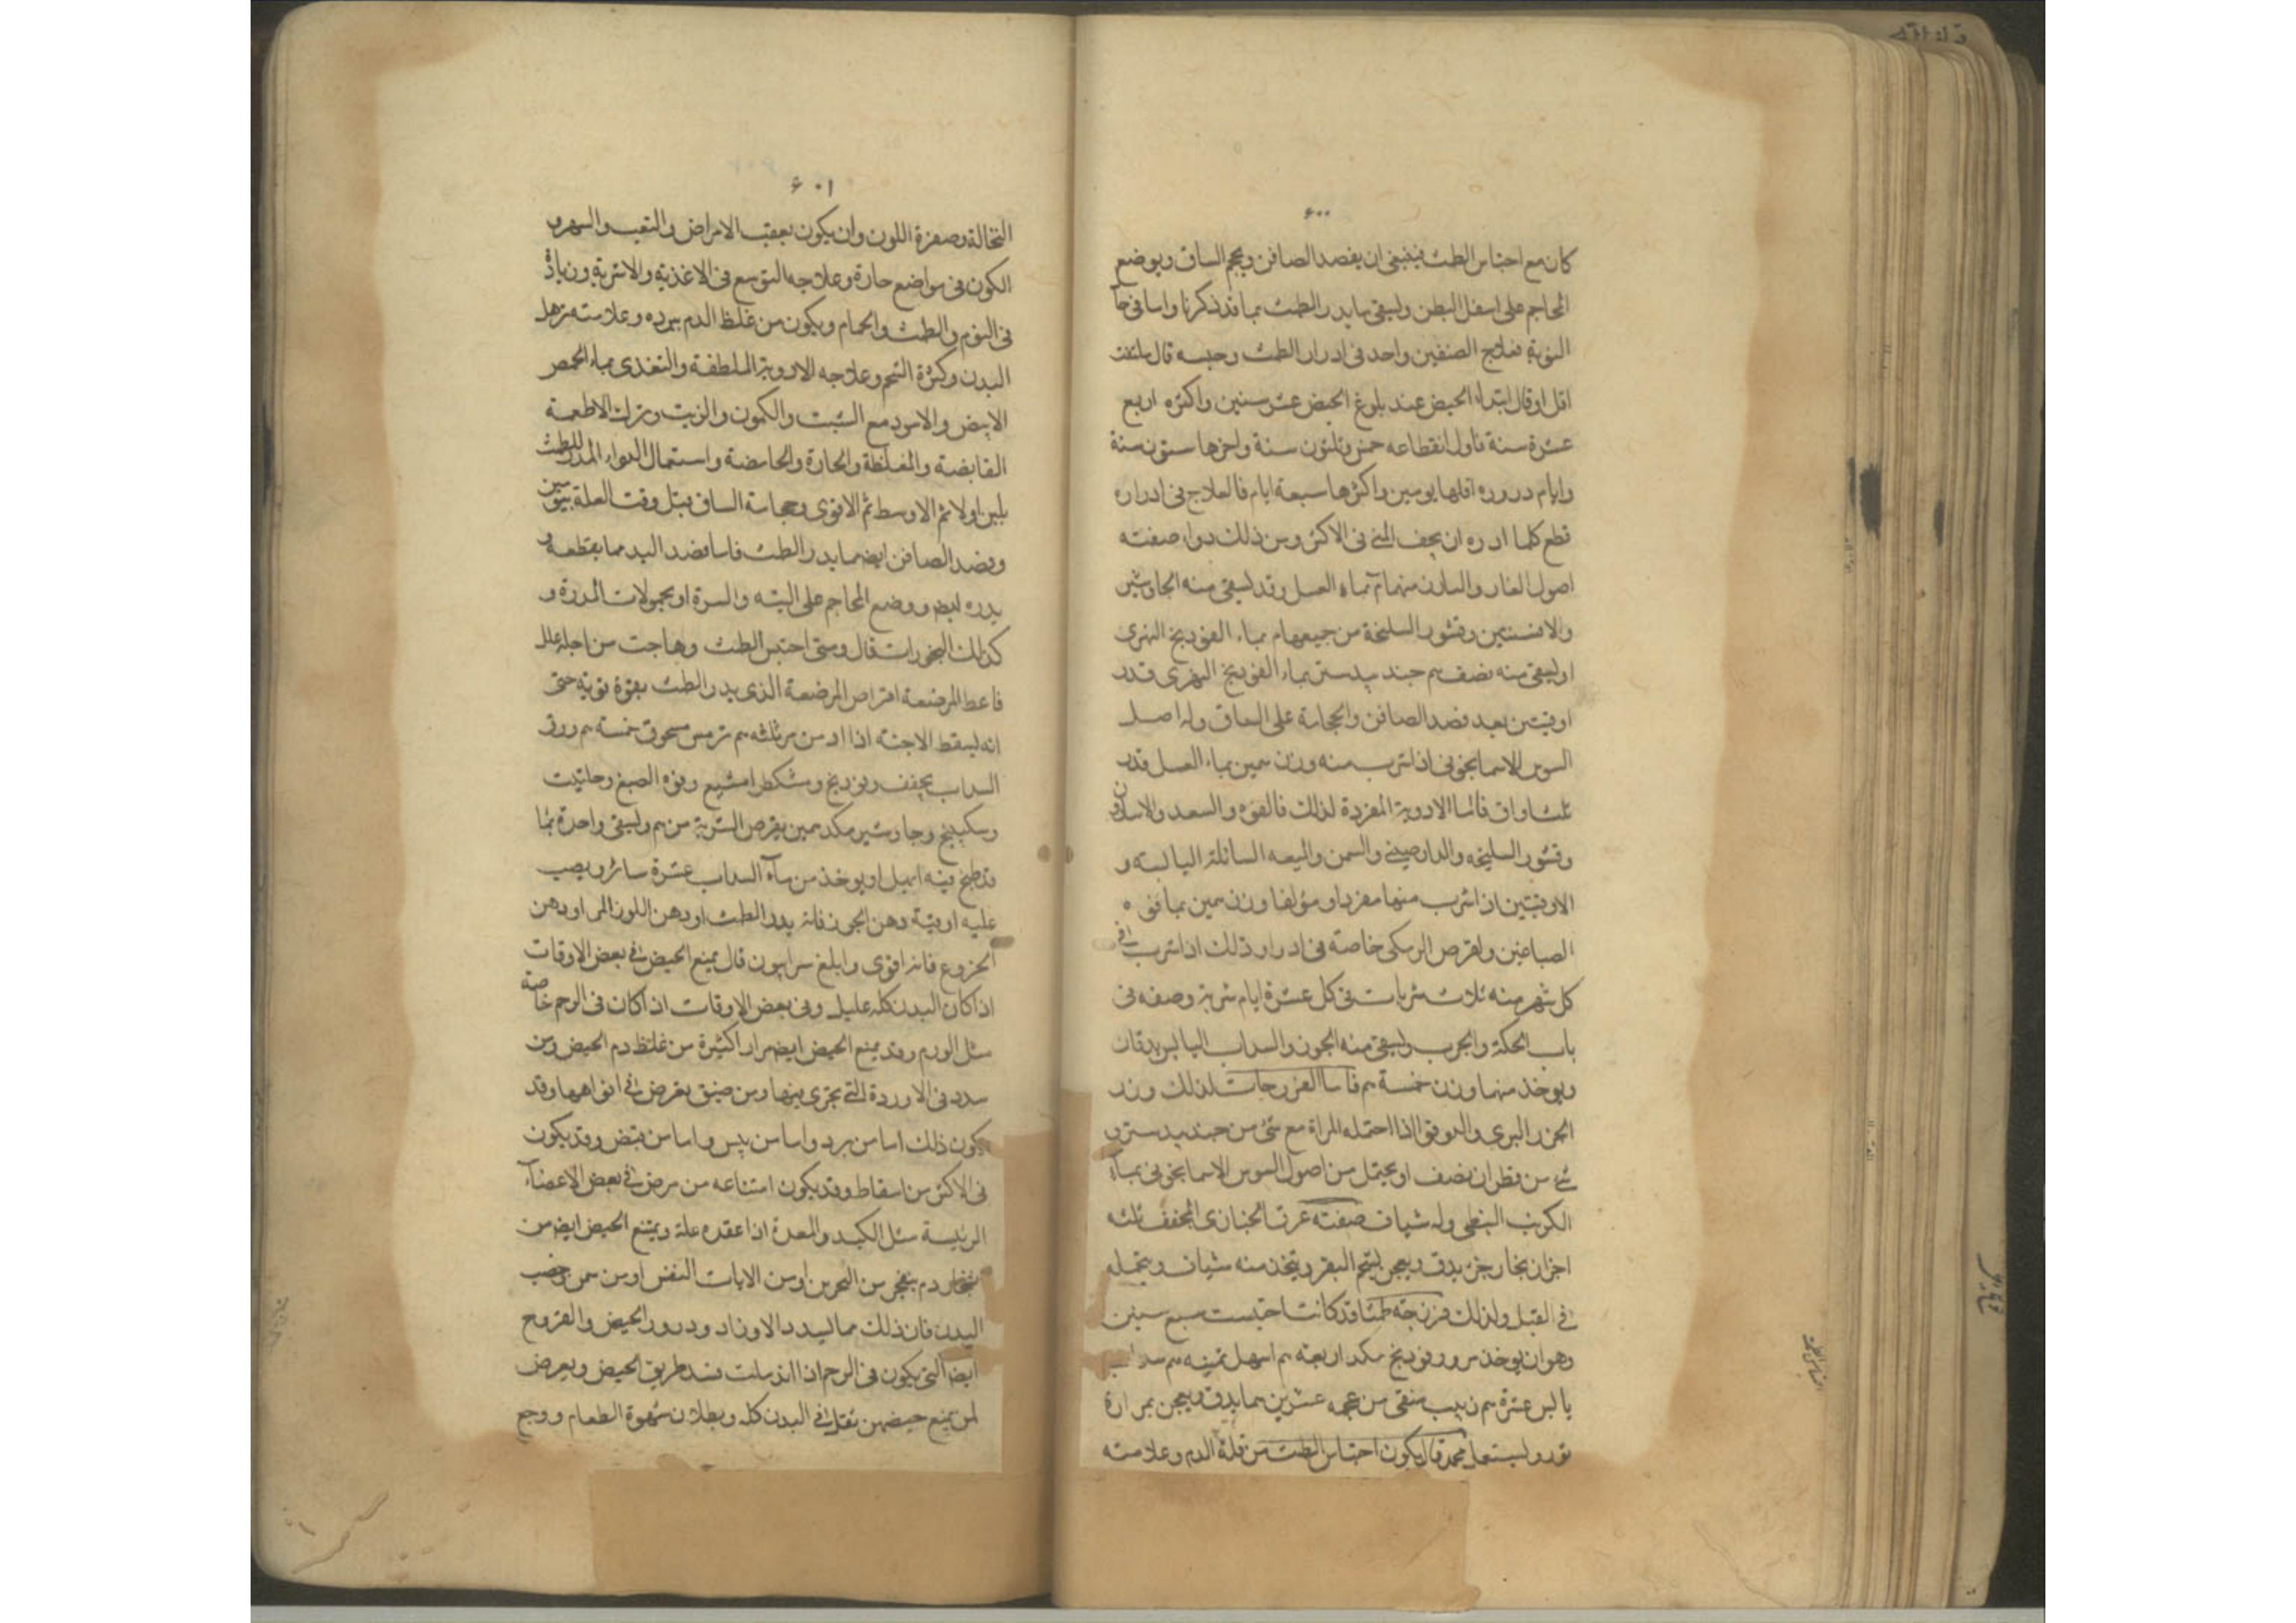 ٦٠٠
كان مع احتباس الطمث فينبغى ان يفصد الصافن ويحجم الساق ويوضع
المحاجم على اسفل البطن ويسقى ما يدر الطمث بما قد ذكرنا واما فى حا
النوبة فعلاج الصنفين واحد فى ادرار الطمث وحبسه قال
اقل اوقال ابتداء الحيض عند بلوغ الحيض عشر سنين واكثره اربع
عشرة سنة فاول انقطاعه خمس وثلثون سنة واخرها ستون سنة
وايام دروره اقلها يومين واكثرها سبعة ايام فالعلاج فى ادراره
قطع كلما ادره ان يجف المنى فى الاكثر ومن ذلك دواء صفته
اصول الغار والسارن منهما م بماء العسل وقد يسقى منه الجاوشير
والافسنتين وقشور السليخة من جميعها م بماء الفودنج النهرى
او يسقى منه نصف م جندبيدستر بماء الفودنج النهرى قدر
اوقيتين بعد فصد الصافن والحجامة على الساق وله اصل
السوس الاسمانجونى اذا شرب منه وزن م بماء العسل قدر
ثلث اواق فاما الادوية المفردة لذلك فالفوه والسعد والاسارون
وقشور السليخه والدارصينى والسمن والميعه السائلة اليابسة و
الاوقيتين اذا شرب منها مفردا ومؤلفا وزن م بما فوه
الصباغين واقرص المرمكى خاصة فى ادرار ذلك اذا شرب فى
كل شهر منه ثلاث شربات فى كل عشرة ايام شربة وصفه فى
باب الحكة والجرب ويسقى منه الجوز والسداب اليابس يدقان
ويوخذ منهما وزن خمسة م فاما الفرزجات لذلك وزر
الجزر البرى والدوقو اذا احتمله المراة مع شئ من جندبيدستر و
شئ من قطران نصف او يحتمل من اصول السوس الاسمانجونى بماء
الكرنب النبطى وله شياف صفته عرق الخبازى المجفف ثلثه
اجزا بخار جزء يدق ويعجن بشحم البقر ويتخذ منه شياف ويتحمله
فى القبل ولذلك فرزجة طمثا قد كانت احتبست سبع سنين
وهو ان يوخذ مرور فودنج مكد اربعة م ابهل ثمنيه م سداب
يابس عشرة م زبيب منقى من عجمه عشرين م ما يدق ويعجن بمرارة
ثور ويستعمل محمد قال يكون احتباس الطمث من قلة الدم وعلامته
٦٠١
النخالة وصفرة اللون وان يكون بعقب الامراض والتعب والسهر و
الكون فى مواضع حارة وعلاجه التوسع فى الاغذية والاشربة وزيادة
فى النوم والطمث والحمام ويكون من غلظ الدم ببرده وعلامته ترهل
البدن وكثرة الشحم وعلاجه الادوية الملطفة والتغذى بماء الحمص
الابيض والاسود مع الشبت والكمون والزيت وترك الاطعمة
القابضة والمغلظة والحارة والحامضة واستعمال الدواء المدر للطمث
بلين اولا ثم الاوسط ثم الاقوى وحجامة الساق قبل وقت العلة بيومين
وفصد الصافن ايضا مما يدر الطمث فاما فصد اليد مما يقطعه و
يدره ايضا ووضع المحاجم على اليته والسرة او بحمولات المدرة و
كذلك البخورات قال ومتى احتبس الطمث وهاجت من اجله علل
فاعط المرضعة اقراص المرضعة الذى يدر الطمث بقوة قوية حتى
انه يسقط الاجنة اذا اد من مر ثلثه م ترمس مسحوق خمسة م ورق
السداب مجفف وفودنج ومشكطرامشيع وفوه الصبغ وحلتيت
وسكبينج وجاوشير مكد يقرص الشربة من م ويسقى واحدة بما
قد طبخ فيه ابهل او يوخذ من ماء السداب عشرة ساتر ويصب
عليه اوقية دهن الجوز فانه يدر الطمث او دهن اللوز المر او دهن
الخروع فانه اقوى وابلغ سرابيون قال يمنع الحيض فى بعض الاوقات
اذا كان البدن كله عليل وفى بعض الاوقات اذا كان فى الرحم خاصة
مثل الورم وقد يمنع الحيض ايضا مرارا كثيرة من غلظ دم الحيض ومن
سدد فى الاوردة التى يجرى فيها ومن ضيق يعرض فى افواهها وقد
يكون ذلك اما من برد واما من يبس واما من قبض وقد يكون
فى الاكثر من اسقاط وقد يكون امتناعه من مرض فى بعض الاعضاء
الرئيسة مثل الكبد والمعدة اذا عقده علة ويمتنع الحيض ايضا من
دم ينفجر من النحرين او من الايات النفس او من سمن وخصب
البدن فان ذلك مما يسدد الاوراد ودرور الحيض والقروح
ايضا التى يكون فى الرحم اذا اندملت فسد طريق الحيض ويعرض
لمن يمنع حيضهن ثقل فى البدن كله وبطلان شهوة الطعام ووجع